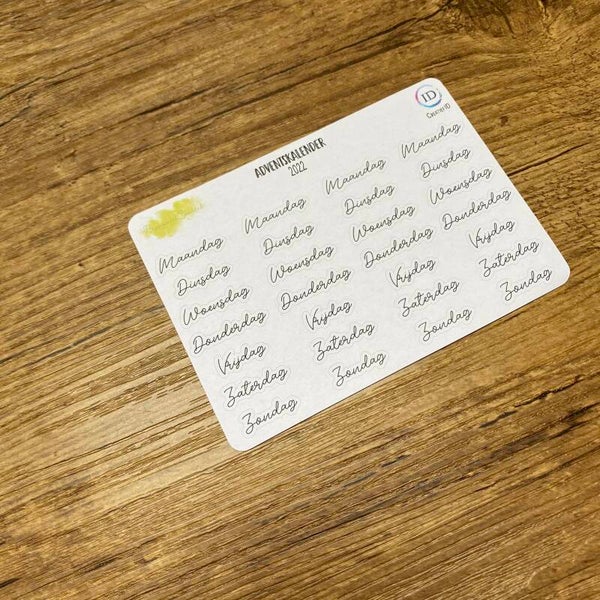 ADVENTSKALENDER
2022
ID
Creatief ID
Maandag Maandag Maandag Maandag
Dinsdag Dinsdag Dinsdag Dinsdag
Woensdag Woensdag Woensdag Woensdag
Donderdag Donderdag Donderdag Donderdag
Vrijdag Vrijdag Vrijdag Vrijdag
Zaterdag Zaterdag Zaterdag Zaterdag
Zondag Zondag Zondag Zondag